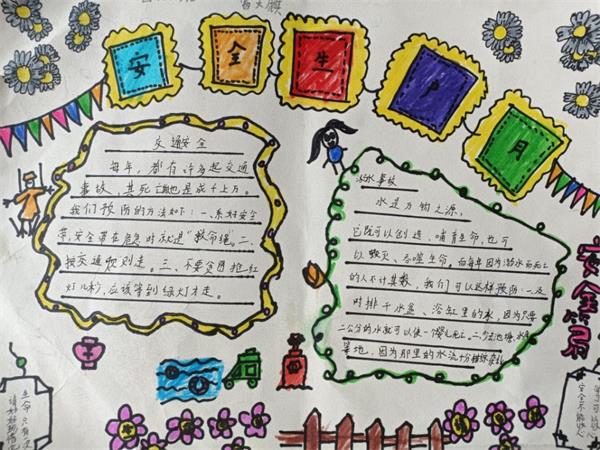 安全生产月
交通安全
每年,都有许多起交通
事故,其死亡也是成千上万。
我们预防的方法如:一、系好安全
带,安全带在危急时就是"救命绳"。二、
按交通规则走。三、不要贪图抢红
灯几秒,应该等到绿灯才走。
溺水事故
水是万物之源,
它既可以创造、哺育生命,也可
以毁灭、吞噬生命。而每年因为溺水而死亡
的人不计其数,我们可以这样预防:一.及
时排干水盆、浴缸里的水,因为只要
二公分的水就可以使一个婴儿死亡。二.少去池塘、水库
等地,因为那里的水流十分
生命只有一次
安全不能